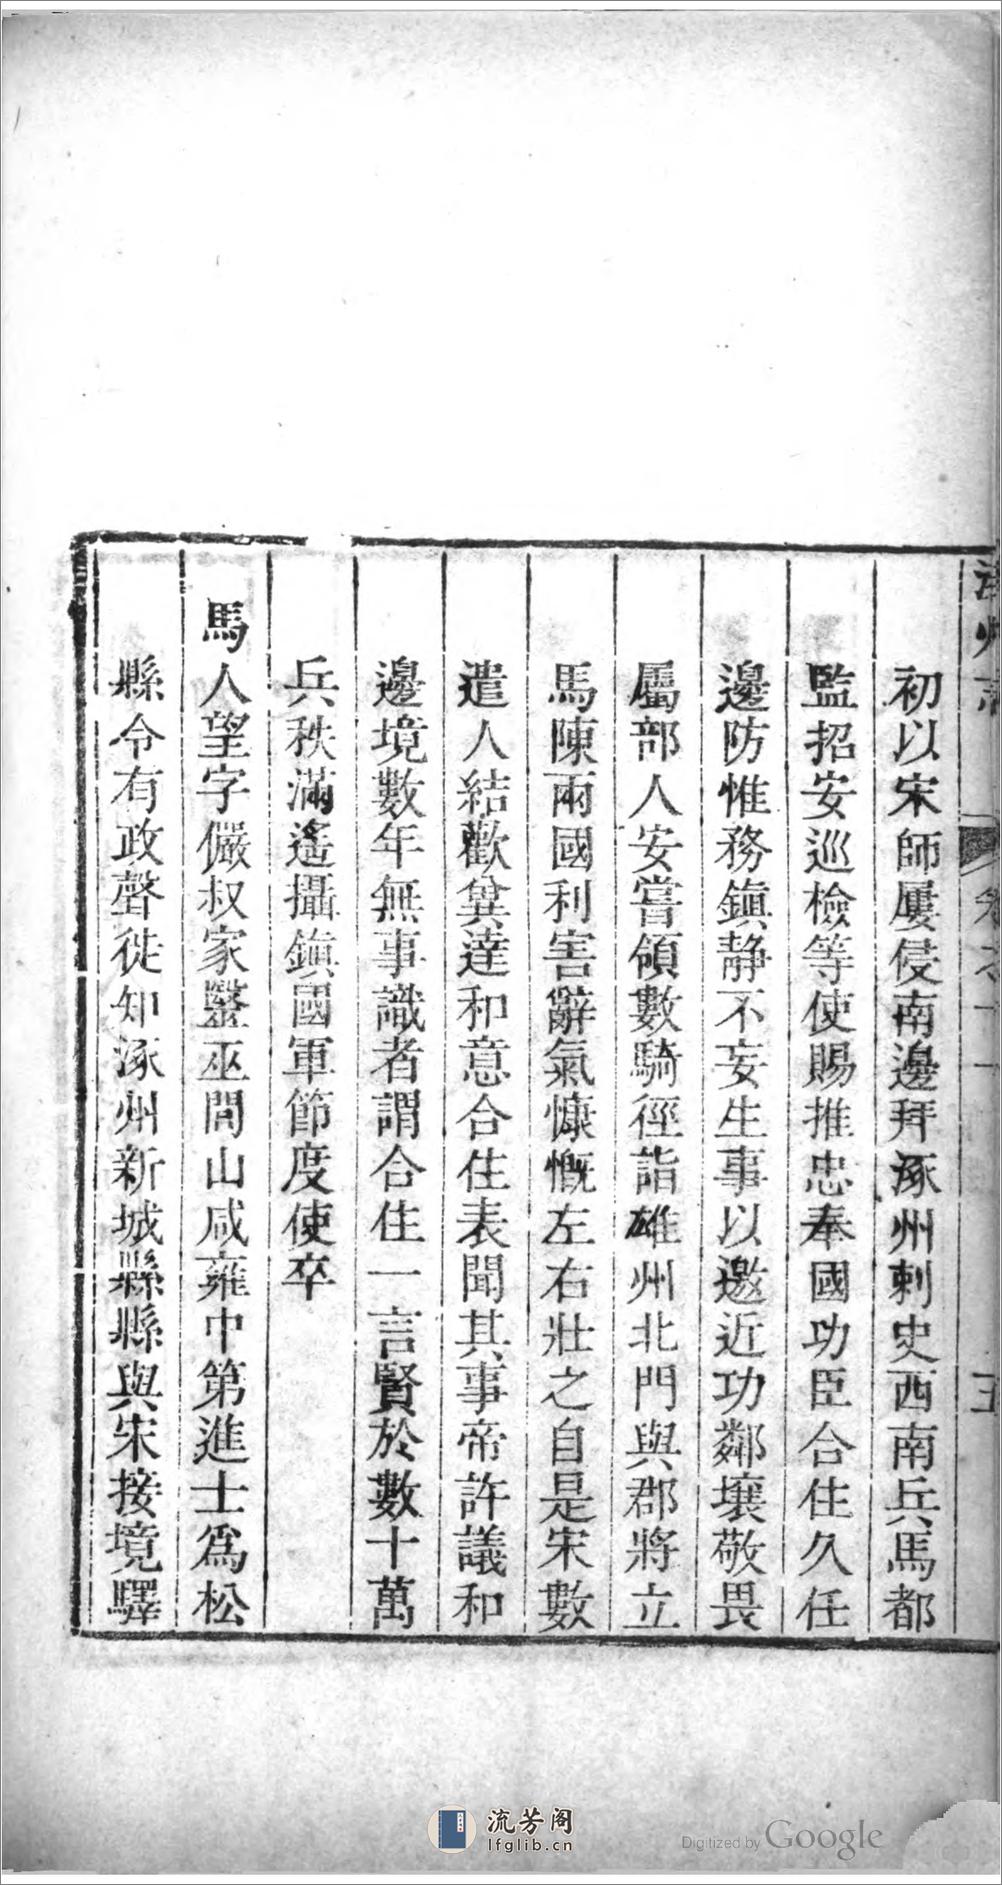 初以宋師屢侵南邊拜涿州刺史西南兵馬都
監招安巡檢等使賜推忠奉國功臣合住久任
邊防惟務鎭静不妄生事以邀近功鄰壤敬畏
屬部人安嘗領數騎徑詣雄州北門與郡將立
馬陳兩國利害辭氣慷慨左右壯之自是宋數
遣人結歡冀達和意合住表聞其事帝許議和
邊境數年無事識者謂合住一言賢於數十萬
兵秩滿遙攝鎭國軍節度使卒
馬人望字儼叔家毉巫閭山咸雍中第進士爲松
縣令有政聲徙知涿州新城縣縣與宋接境驛
流芳阁
lfglib.cn
Digitized by Google